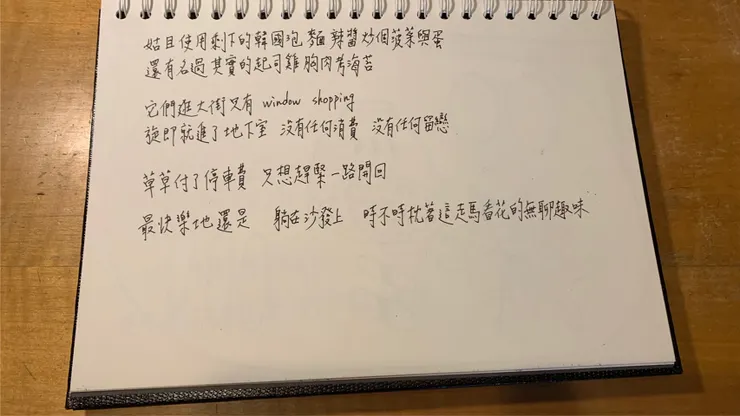 姑且使用剩下的韓國泡麵辣醬炒個菠菜與蛋
還有名過其實的起司雞胸肉烤海苔
它們逛大街只有 window shopping
旋即就進了地下室 沒有任何消費 沒有任何留戀
草草付了停車費 只想趕緊一路開回
最快樂地還是 躺在沙發上 時不時枕著這走馬看花的無聊趣味